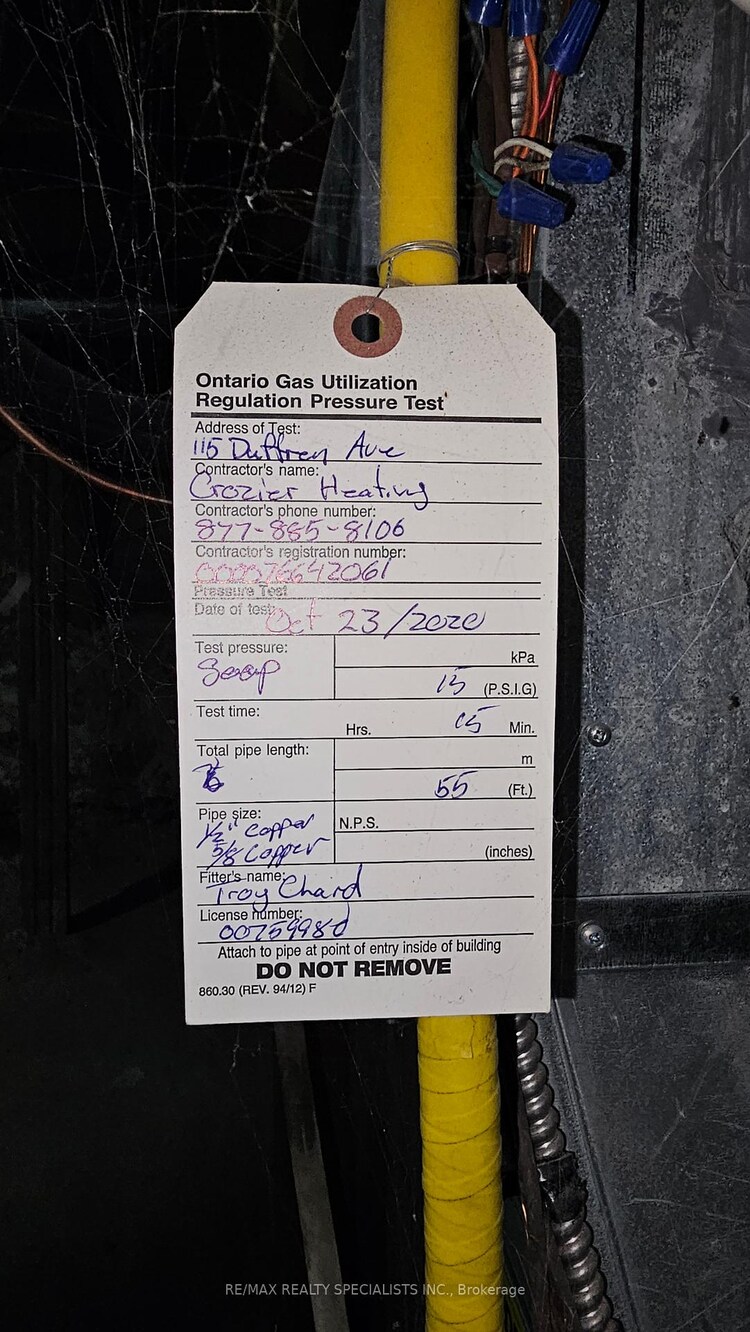 Ontario Gas Utilization
Regulation Pressure Test
Address of Test:
115 Duffren Ave
Contractor's name:
Crozier Heating
Contractor's phone number:
877-885-8106
Contractor's registration number:
000076642061
Pressure Test
Date of test:
Oct 23/2020
Test pressure:
Soap
kPa
15 (P.S.I.G)
Test time:
Hrs. 15 Min.
Total pipe length:
m
55 (Ft.)
Pipe size:
1/2" Copper
5/8 Copper
N.P.S.
(inches)
Fitter's name:
Troy Chard
License number:
Attach to pipe at point of entry inside of building
DO NOT REMOVE
860.30 (REV. 94/12) F
RE/MAX REALTY SPECIALISTS INC., Brokerage